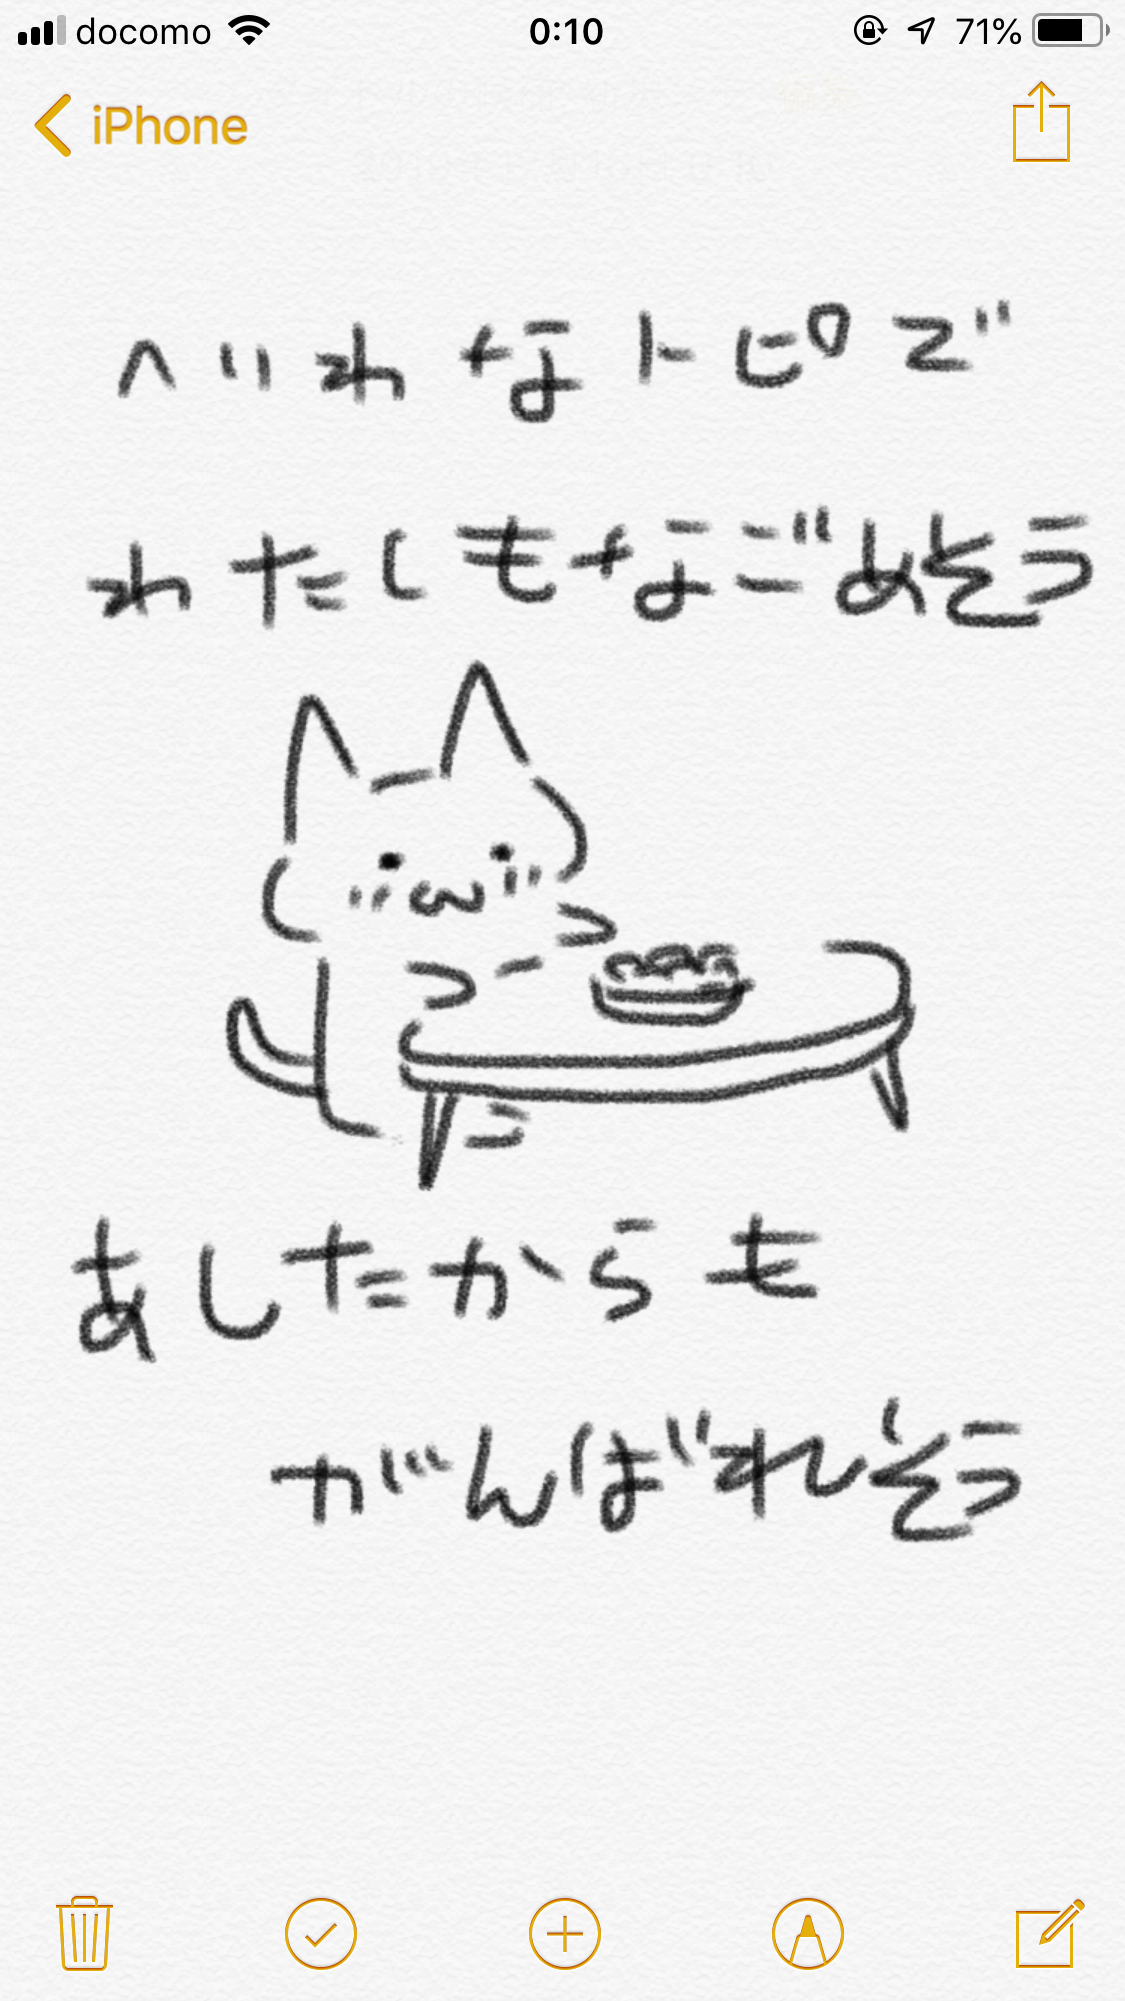 docomo 0:10 71%
iPhone
へいわなトピで
わたしもなごめそう
あしたからも
がんばれそう